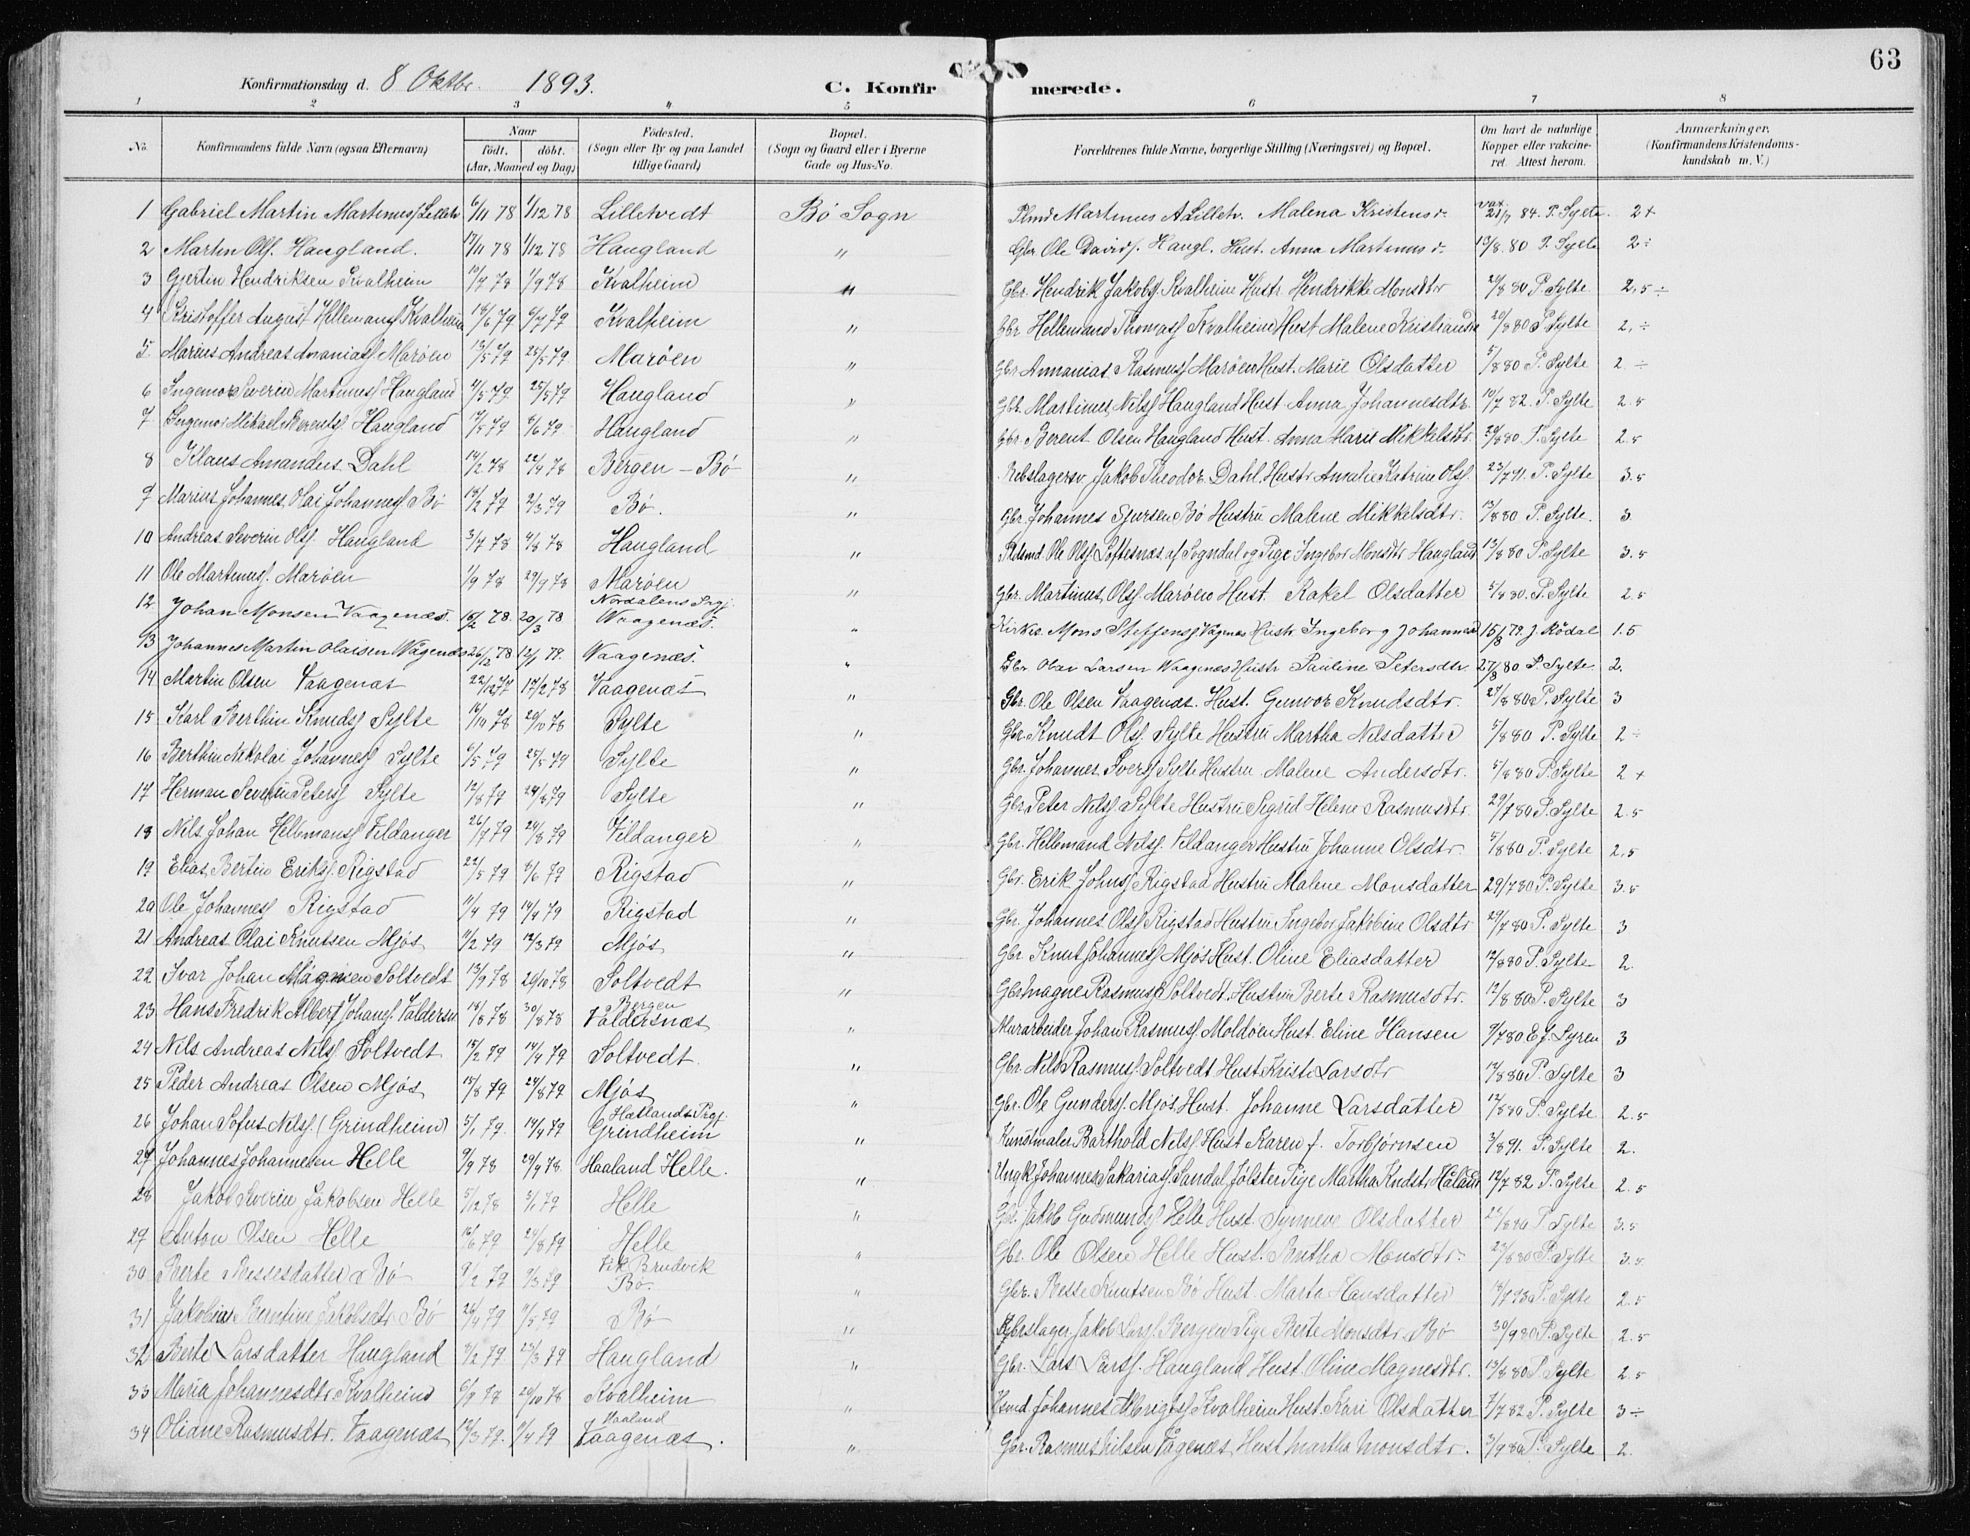 63
Konfirmationsdag d. 8 Oktbr. 1893. C. Konfirmerede.
1 2 3 4 5 6 7 8
No. Konfirmandens fulde Navn (ogsaa Efternavn) Naar født. døbt. (Aar, Maaned og Dag) Fødested. (Sogn eller By og paa Landet tillige Gaard) Bopæl. (Sogn og Gaard eller i Byerne Gade og Hus-No. Forældrenes fulde Navne, borgerlige Stilling (Næringsvei) og Bopæl. Om havt de naturlige Kopper eller vakcineret. Attest herom. Anmærkninger. (Konfirmandens Kristendomskundskab m. V.)
1 Gabriel Martin Martinuss. Lilletv. 6/11 78 1/12 78 Lilletvedt Bø Sogn Plmd Martinus A Lilletv. Malena Kristensd 84. P. Sylte. 2+
2 Martin Ols. Haugland. 17/11 78 1/12 78 Haugland " Gbr. Ole Davids. Haugl. Hust. Anna Martinusd 13/8 80 P. Sylte 2÷
3 Gjertin Hendriksen Kvalheim 78 1/9 78 Kvalheim " Gbr. Hendrik Jakobs. Kvalheim Hustr. Hendrikke Monsdtr 80 P. Sylte 2,5÷
4 Kristoffer August Hellemans. Kvalheim 79 6/7 79 Kvalheim " Gbr. Hellemand Thomass. Kvalheim Hust. Malene 80 P. Sylte 2,÷
5 Marius Andreas Ananiass. Marøen 13/5 79 25/5 79 Marøen " Gbr. Annanias Rasmuss. Marøen Hust. Marie Olsdatter 5/8 80 P. Sylte 2 ÷
6 Severin Martinuss. Haugland 4/5 79 25/5 79 Haugland " Gbr. Martinus Nilss. Haugland Hust. Anna Johannesdtr. 10/7 82. P. Sylte 2.5
7 Mikael Berents. Haugland 79 8/6 79. Haugland " Gbr. Berent Olsen Haugland Hust. Anna Marie Mikkelsdtr 80 P. Sylte 2.5
8 Klaus Amandus Dahl 14/2 78 78 Bergen – Bø " Rebslagersv. Jakob Theodor Dahl. Hustr Amalie Katrine Ols. P. Sylte 3.5
9 Marius Johannes Olai Johanness. Bø 18/2 79 2/3 79 Bø. " Gbr. Johannes Sjursen Bø Hustru Malene Mikkelsdtr. 80 P. Sylte. 3
10 Andreas Severin Ols. Haugland 3/7 78 4/8 78 Haugland " Ole Ols. Loftesnæs af Sogndal og Pige Ingebor Monsdtr Haugland 13/8 80 P. Sylte 3.5
11 Ole Martinuss. Marøen 1/9 78 29/9 78 Marøen " Gbr. Martinus Ols. Marøen Hust. Rakel Olsdatter 5/8 80. P. Sylte 2.5
12. Johan Monsen Vaagenæs. 78 20/3 78 Nordalens Prgj. Vaagenæs. " Kirkes. Mons Steffens. Vågenæs Hustr. Ingeborg 15/8 79. J. Rødal 1.5
13 Johannes Martin Olaisen Vågenæs 26/12 78 12/1 79. Vaagenæs. " Gbr. Olai Larsen Vaagenæs Hustr Pauline Petersdtr. 27/8 80 P. Sylte 2.
14 Martin Olsen Vaagenæs 22/12 77 17/2 78 Vaagenæs " Gbr. Ole Olsen Vaagenæs. Hust. Gunvor Knudsdtr. 80 P. Sylte 3
15 Karl Berthin Knuds. Sylte 16/10 78 20/10 78 Sylte " Gbr. Knudt Ols. Sylte Hustru Martha Nilsdatter 5/8 80 P. Sylte 2÷
16 Berthin Nikolai Johanness. Sylte 6/5 79 25/5 79 Sylte " Gbr. Johannes Ivers. Sylte Hustru Malene Andersdtr. 5/8 80 P. Sylte 2+
17 Herman Severin Peters. Sylte 12/8 79 24/8 79 Sylte " Gbr. Peter Nilss. Sylte Hustru Sigrid Helene Rasmusdtr 29/7 80 P. Sylte 2.5
18 Nils Johan Hellemans. Vildanger 26/7 79 24/8 79 Vildanger " Gbr. Hellemand Nilss. Vildanger Hustru Johanne Olsdtr. 5/8 80 P. Sylte 2,5
19 Elias Bertin Eriks. Rigstad 22/5 79 8/6 79 Rigstad " Gbr. Erik Johns. Rigstad Hustru Malene Monsdatter 29/7 80 P. Sylte 3.5
20 Ole Johanness. Rigstad 11/4 79 14/4 79 Rigstad " Gbr. Johannes Ols. Rigstad Hustru Ingebor Jakobine Olsdtr 29/7 80 P. Sylte 3
21 Andreas Olai Knutsen Mjøs 11/2 79 12/3 79 Mjøs " Gbr Knut Johanness. Mjøs Hust. Oline Eliasdatter 12/8 80 P. Sylte 2.
22 Ivar Johan Magnesen Soltvedt 13/9 78 20/10 78 Soltvedt " Gbr Magne Rasmuss. Soltvedt. Hustru Berte Rasmusdtr. 12/8 80 P. Sylte 3
23 Hans Fredrik Albert Johans. Valdersn. 18/8 78 30/8 78 Bergen Valdersnæs " Murarbeider Johan Rasmuss. Moldøen Hust. Eline Hansen 80 E.J. Syren 3
24 Nils Andreas Nilss. Soltvedt 14/2 79 14/4 79 Soltvedt. " Gbr. Nils Rasmuss. Soltvedt Hust Kristi Larsdtr 12/8 80 P. Sylte 3
25 Peder Andreas Olsen Mjøs 15/8 79 24/8 79 Mjøs " Gbr. Ole Gunders. Mjøs Hust. Johanne Larsdatter 12/8 80 P. Sylte 2.5
26 Johan Sofus Nilss. (Grindheim) 5/1 79. 14/4 79 Hætlands Prgj. Grindheim " Kunstmaler Barthold Nilss. Hust Karen f. Torbjørnsen 3/8 91. P. Sylte 2.
27 Johannes Johannesen Helle 9/9 78 29/9 78. Haaland Helle. " Ungk. Johannes Sakariass. Sandal Jølster Pige Martha Håland 12/7 82 P. Sylte 2.5
28 Jakob Severin Jakobsen Helle 5/12 78 5/1 79 Helle " Gbr. Jakob Gudmunds. Helle Hust. Synneve Olsdatter 80 P. Sylte 3.5
29 Anton Olsen Helle 16/6 79 24/8 79 Helle " Gbr. Ole Olsen Helle Hust. Britha Monsdtr. 80 P. Sylte 3.5
30 Berte Bessesdatter Bø 9/2 79 9/3 79 Brudvik Bø. " Gbr. Besse Knutsen Bø Hust. Marta Hansdatter P. Sylte 2.5
31 Jakobine Berntine Jakobsdtr Bø 26/4 79 11/5 79 Bø " Jakob Lars. Bergen Pige Berte Monsdtr. Bø 30/9 80 P. Sylte 2.5
32 Berte Larsdatter Haugland 3/2 79. 23/3 79 Haugland " Gbr. Lars Larss. Haugland Hust Oline Magnesdtr. 13/8 80 P. Sylte 2.5
33 Maria Johannesdtr. Kvalheim 6/9 78 20/10 78 Kvalheim " Hsmd Johannes Kvalheim Hust Kari Olsdatter 7/7 82 P. Sylte 3÷
34 Oliane Rasmusdtr. Vaagenæs 12/3 79. 11/4 79 Haaland Vaagenæs. " Gbr. Rasmus Nilsen Vågenæs Hust Martha Monsdtr. 3/9 80 P. Sylte 2.